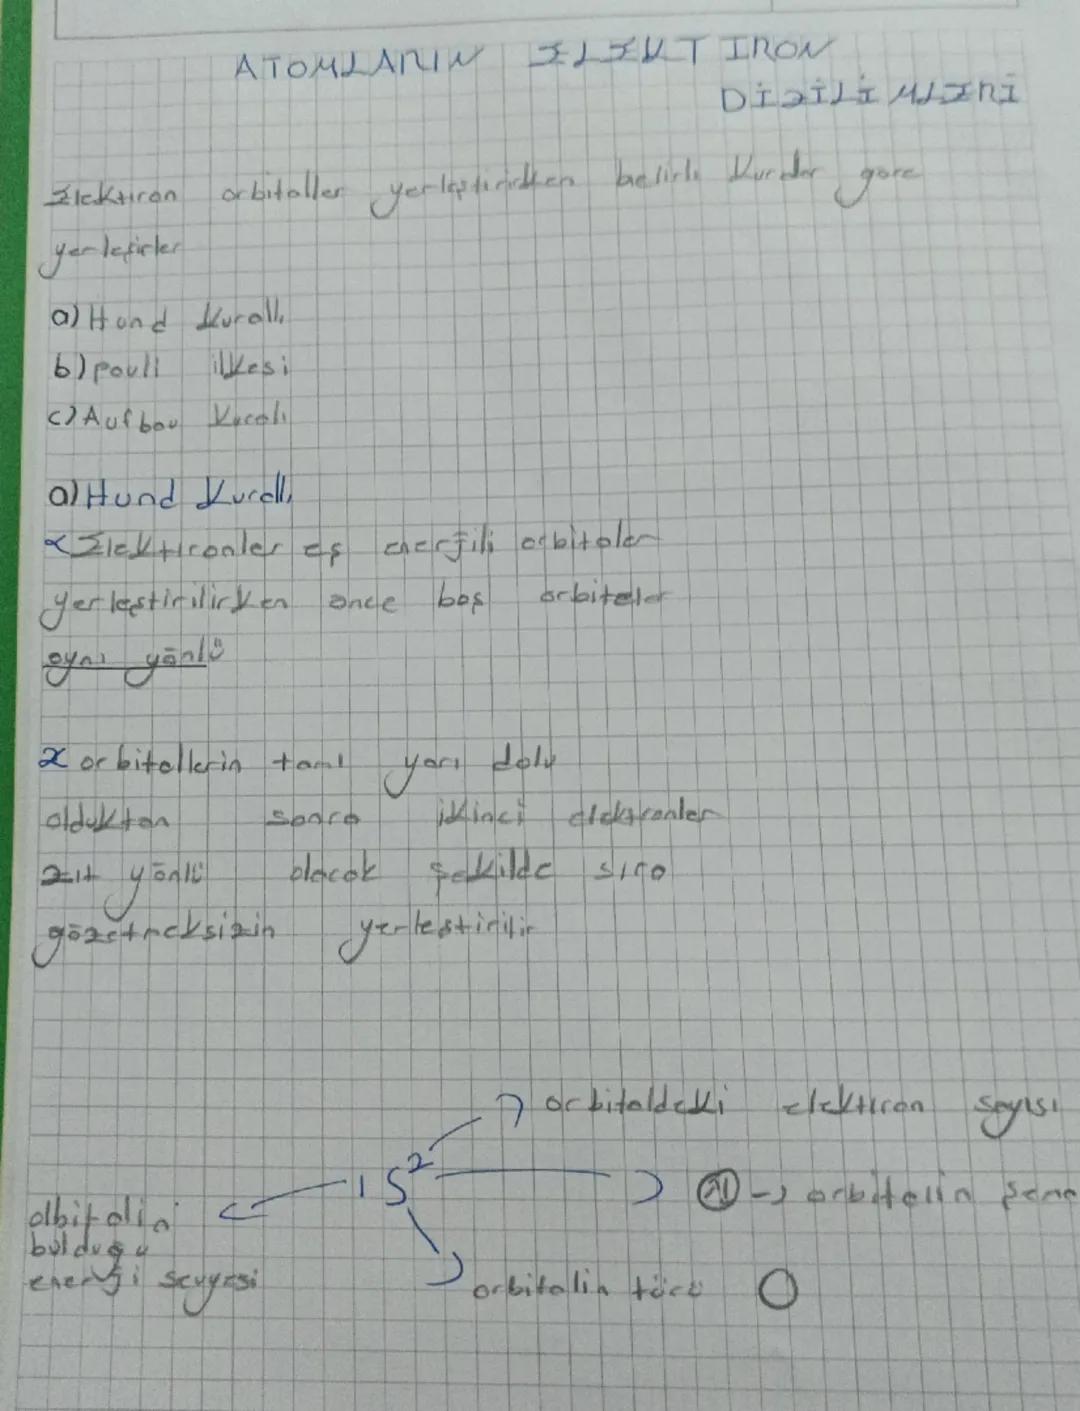 ATOMLARIN ELEKTIRON
DİZİLİMLERİ
Elektıron orbitaller yerleştirirken belirli kurallar göre
yerleşirler
a) Hund kurallı
b) pauli ilkesi
c) Aufbau kuralı
a) Hund kurallı
x Elektıronler eş enerjili orbitaler
yerleştirilirken önce boş orbiteler
aynı yönlü
x orbitallerin tamı yarı dolu
olduktan sonra ikinci elektronler
zıt yönlü olacak şekilde sıra
gözetmeksizin yerleştirilir
orbitaldeki elektıron sayısı
1 S² ↑↓ → orbitalin şema
olbitalin
bulduğu
enerji seviyesi
orbitalin türü